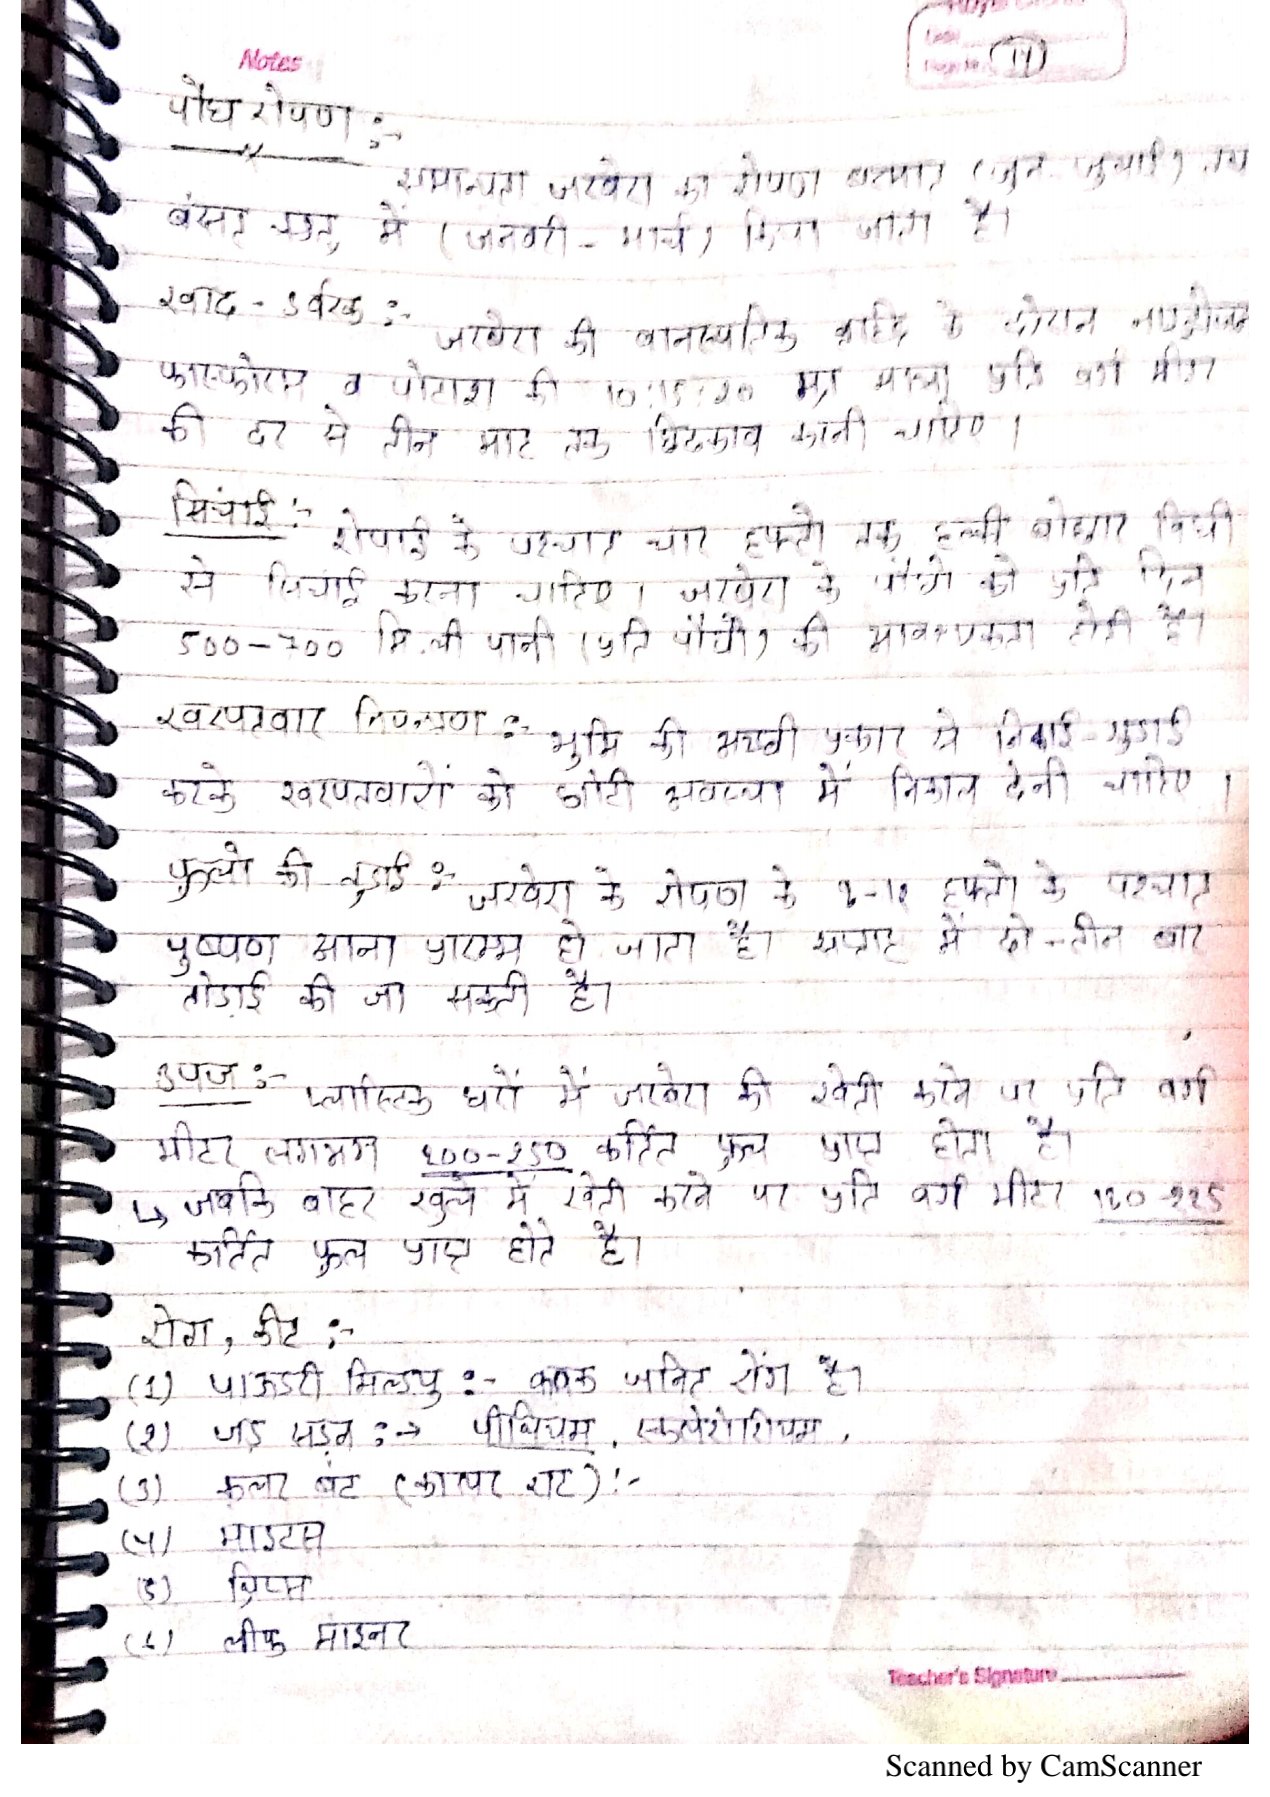 Notes
(14)
पौध रोपण :-
सामान्यता जरवेरा का रोपण बरसात (जून जुलाई) तथा
बंसत ऋतु में (जनवरी - मार्च) किया जाता है।
खाद - उर्वरक :- जरवेरा की वानस्पतिक वृद्धि के दौरान नाइट्रोजन
फास्फोरस व पोटाश की 10:15:20 ग्रा मात्रा प्रति वर्ग मीटर
की दर से तीन माह तक छिडकाव करनी चाहिए।
सिचांई :- रोपाई के पश्चात चार हफ्तो तक हल्की बोछार विधी
से सिचाई करना चाहिए। जरवेरा के पौधो को प्रति दिन
500-700 मि.ली पानी (प्रति पौधी) की आवश्यकता होती है।
खरपतवार नियन्त्रण :- भुमि की अच्छी प्रकार से निदाई-गुडाई
करके खरपतवारों को छोटी अवस्था में निकाल देनी चाहिए।
फुलो की तुडाई :- जरवेरा के रोपण के हफ्तो के पश्चात
पुष्पण आना प्रारम्भ हो जाता है। सप्ताह में दो-तीन बार
तोडाई की जा सकती है।
उपज :- प्लास्टिक घरों में जरवेरा की खेती करने पर प्रति वर्ग
मीटर लगभग 200-250 कर्तित फुल प्राप्त होता है।
↳ जबकि बाहर खुले में खेती करने पर प्रति वर्ग मीटर
कर्तित फुल प्राप्त होते है।
रोग, कीट :-
(1) पाऊडरी मिल्डयु :- कवक जनित रोंग है।
(2) जड़ सड़न :-> पीथियम, स्कलेरोशियम,
(3) कलर बंट (कालर राट) :-
(4) माइटस
(5) थ्रिप्स
(6) लीफ माइनर
Teacher's Signature
Scanned by CamScanner